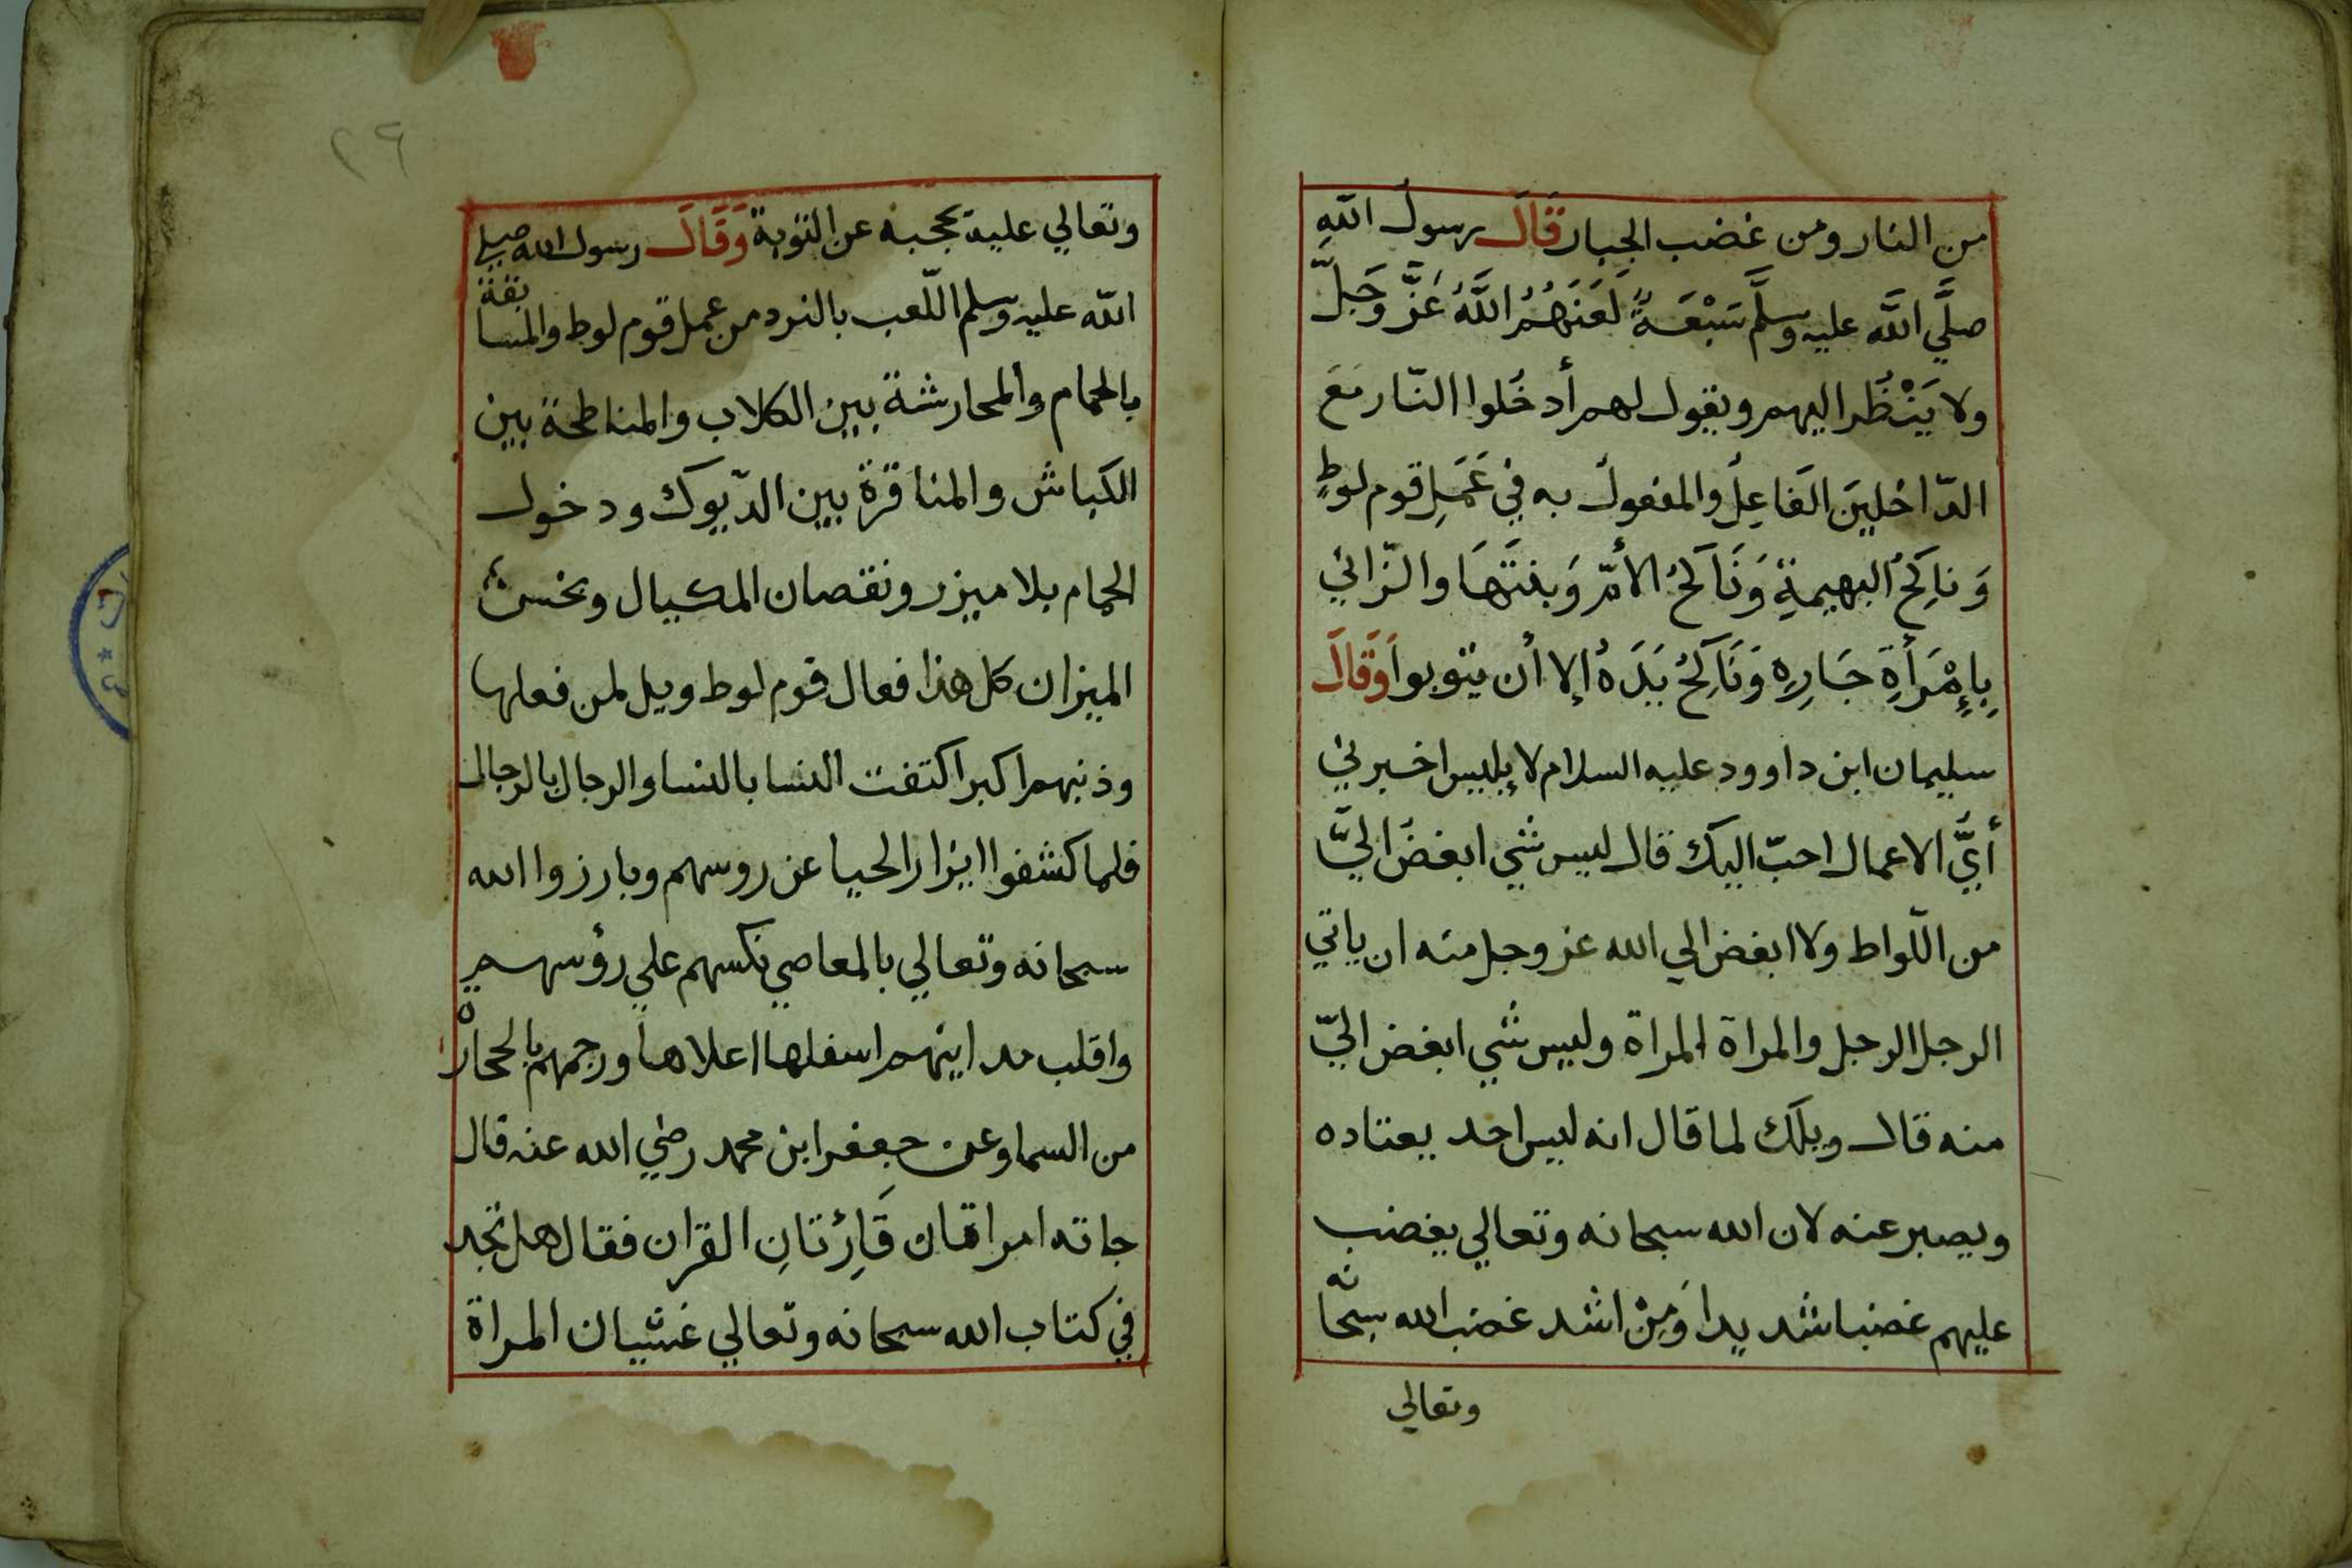 من النار ومن غضب الجبار قَالَ رسولُ اللهِ
صلَّي اللَّه عليه وسلَّم سَبْعَةٌ لَعَنَهُمُ اللَّهُ عَزَّ وَجَلَّ
ولا يَنْظُر اليهم ويقول لهم أدخُلوا النّار مَعَ
الدّاخلينَ الفَاعِلُ والمفعولُ به في عَمَلِ قوم لوطٍ
وَناكِحُ البهيمةِ وَنَاكحُ الأمّ وَبنتَهَا والزّاني
بِإمْرَأةِ جَارِهِ وَنَاكِحُ يَدَهُ إلا أن يتوبوا وَقَالَ
سليمان ابن داوود عليه السلام لإبليس اخبرني
أيُّ الاعمال احبّ اليك قال ليس شي ابغضُ اليَّ
من اللّواط ولا ابغض الي الله عز وجل منه ان ياتي
الرجل الرجل والمراة المراة وليس شي ابغض اليّ
منه قال ويلَك لما قال انه ليس احد يعتاده
ويصبر عنه لان الله سبحانه وتعالي يغضب
عليهم غضبا شديدا وَمِنْ اشد غضب الله سبحانه
وتعالي
٢٩
وتعالي عليه يحجبه عن التوبة وَقَالَ رسول الله صلي
الله عليه وسلم اللّعب بالنرد من عمل قوم لوط والمسابقة
بالحمام والمحارشة بين الكلاب والمناطحة بين
الكباش والمناقرة بين الدّيوك ودخول
الحمام بلا ميزر ونقصان المكيال وبخس
الميزان كل هذا فعال قوم لوط ويل لمن فعلها
وذنبهم اكبر اكتفت النسا بالنسا والرجال بالرجال
فلما كشفوا ايزار الحيا عن روسهم وبارزوا الله
سبحانه وتعالي بالمعاصي نكسهم علي رؤسهم
واقلب مداينهم اسفلها اعلاها ورجمهم بالحجارة
من السما وعن جعفر ابن محمد رضي الله عنه قال
جاته امراتان قَارِئتانِ القران فقال هل تجد
في كتاب الله سبحانه وتعالي غشيان المراة